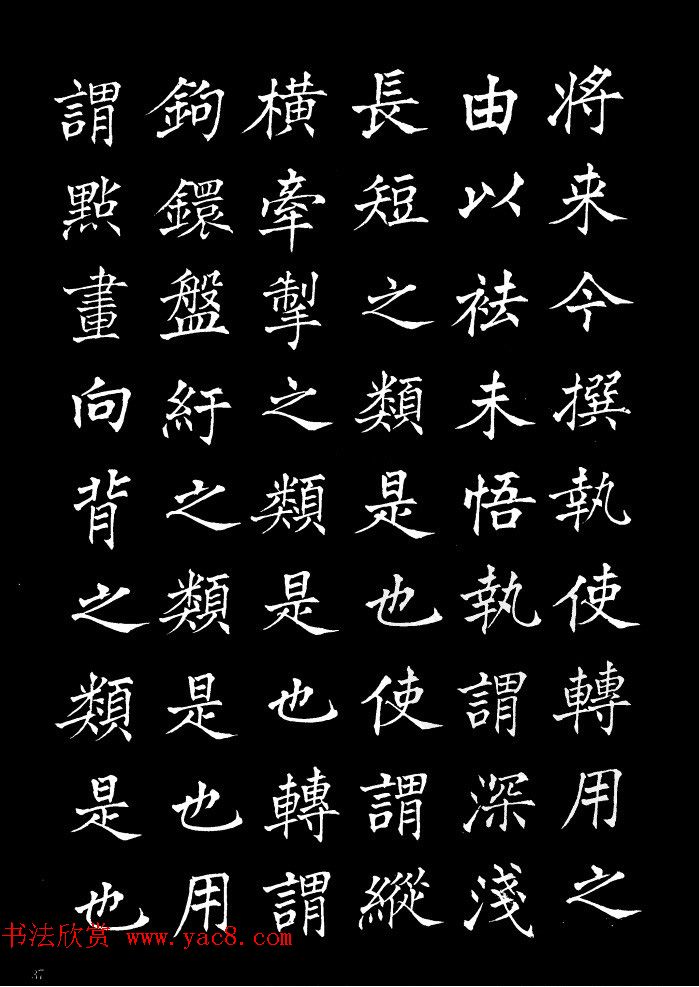 将来今撰執使轉用之
由以袪未悟執謂深淺
長短之類是也使謂縱
横牽掣之類是也轉謂
鉤鐶盤紆之類是也用
謂點畫向背之類是也
书法欣赏 www.yac8.com
37